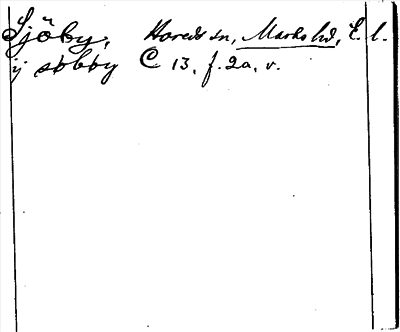 Sjöby, Horeds sn, Marks hd, E. l.
ij søbby C 13, f. 2a, v.